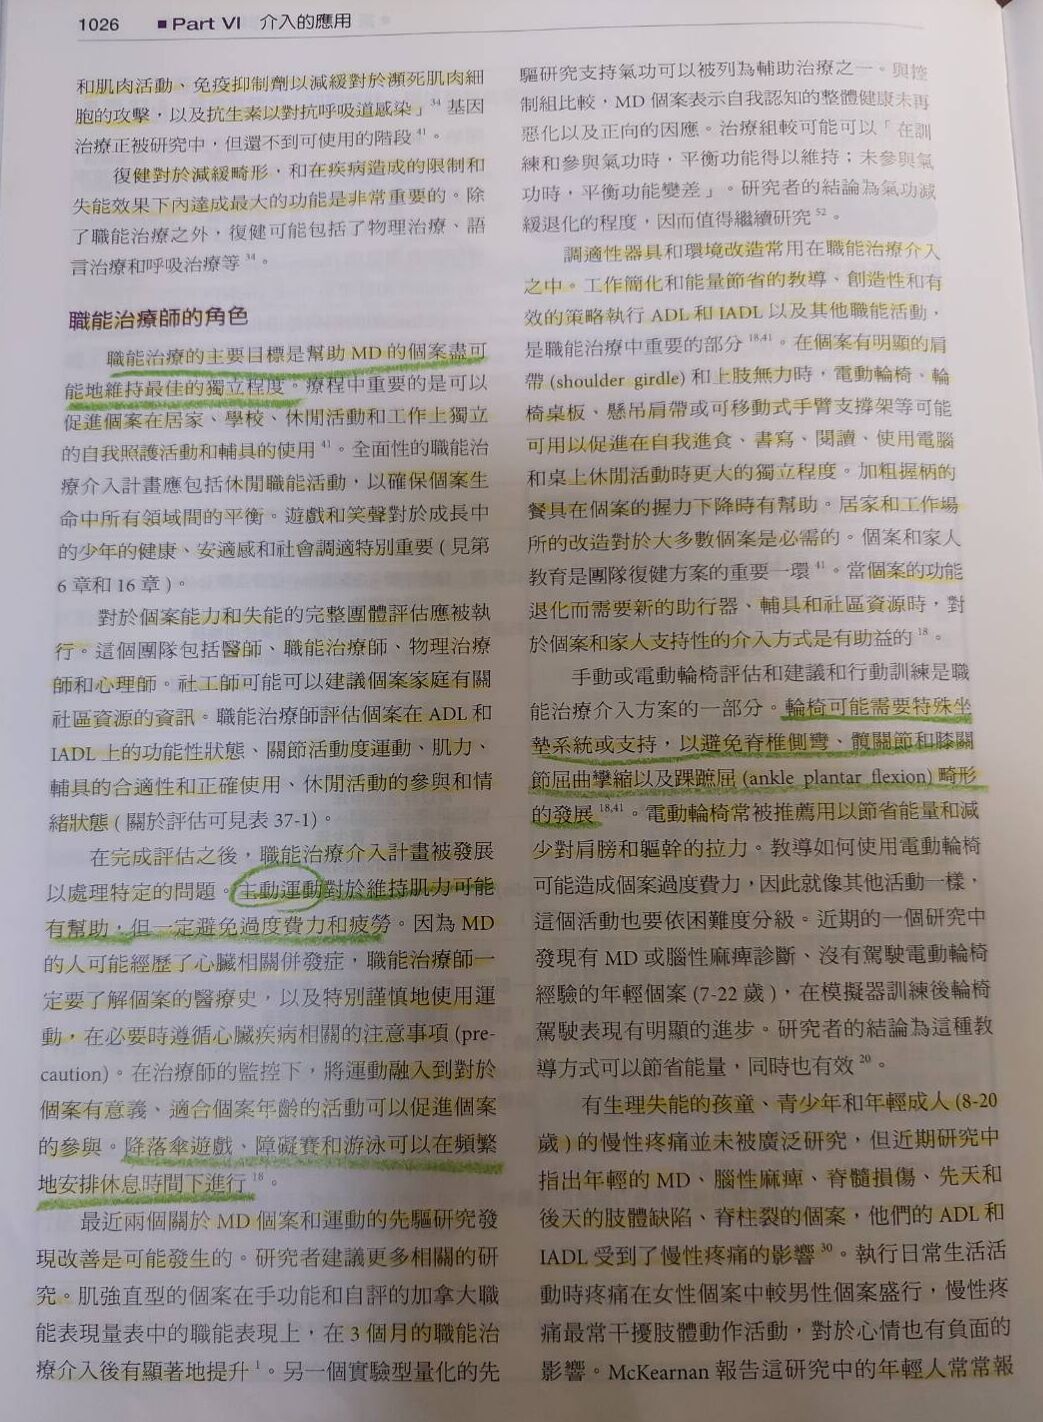 1026 ■Part VI 介入的應用
和肌肉活動、免疫抑制劑以減緩對於瀕死肌肉細
胞的攻擊，以及抗生素以對抗呼吸道感染」34 基因
治療正被研究中，但還不到可使用的階段41。
復健對於減緩畸形，和在疾病造成的限制和
失能效果下內達成最大的功能是非常重要的。除
了職能治療之外，復健可能包括了物理治療、語
言治療和呼吸治療等34。
職能治療師的角色
職能治療的主要目標是幫助 MD 的個案盡可
能地維持最佳的獨立程度。療程中重要的是可以
促進個案在居家、學校、休閒活動和工作上獨立
的自我照護活動和輔具的使用41。全面性的職能治
療介入計畫應包括休閒職能活動，以確保個案生
命中所有領域間的平衡。遊戲和笑聲對於成長中
的少年的健康、安適感和社會調適特別重要 ( 見第
6 章和 16 章 )。
對於個案能力和失能的完整團體評估應被執
行。這個團隊包括醫師、職能治療師、物理治療
師和心理師。社工師可能可以建議個案家庭有關
社區資源的資訊。職能治療師評估個案在 ADL 和
IADL 上的功能性狀態、關節活動度運動、肌力、
輔具的合適性和正確使用、休閒活動的參與和情
緒狀態 ( 關於評估可見表 37-1)。
在完成評估之後，職能治療介入計畫被發展
以處理特定的問題。主動運動對於維持肌力可能
有幫助，但一定避免過度費力和疲勞。因為 MD
的人可能經歷了心臟相關併發症，職能治療師一
定要了解個案的醫療史，以及特別謹慎地使用運
動，在必要時遵循心臟疾病相關的注意事項 (pre-
caution)。在治療師的監控下，將運動融入到對於
個案有意義、適合個案年齡的活動可以促進個案
的參與。降落傘遊戲、障礙賽和游泳可以在頻繁
地安排休息時間下進行18。
最近兩個關於 MD 個案和運動的先驅研究發
現改善是可能發生的。研究者建議更多相關的研
究。肌強直型的個案在手功能和自評的加拿大職
能表現量表中的職能表現上，在 3 個月的職能治
療介入後有顯著地提升1。另一個實驗型量化的先
驅研究支持氣功可以被列為輔助治療之一。與控
制組比較，MD 個案表示自我認知的整體健康未再
惡化以及正向的因應。治療組較可能可以「在訓
練和參與氣功時，平衡功能得以維持；未參與氣
功時，平衡功能變差」。研究者的結論為氣功減
緩退化的程度，因而值得繼續研究52。
調適性器具和環境改造常用在職能治療介入
之中。工作簡化和能量節省的教導、創造性和有
效的策略執行 ADL 和 IADL 以及其他職能活動，
是職能治療中重要的部分18,41。在個案有明顯的肩
帶 (shoulder girdle) 和上肢無力時，電動輪椅、輪
椅桌板、懸吊肩帶或可移動式手臂支撐架等可能
可用以促進在自我進食、書寫、閱讀、使用電腦
和桌上休閒活動時更大的獨立程度。加粗握柄的
餐具在個案的握力下降時有幫助。居家和工作場
所的改造對於大多數個案是必需的。個案和家人
教育是團隊復健方案的重要一環41。當個案的功能
退化而需要新的助行器、輔具和社區資源時，對
於個案和家人支持性的介入方式是有助益的18。
手動或電動輪椅評估和建議和行動訓練是職
能治療介入方案的一部分。輪椅可能需要特殊坐
墊系統或支持，以避免脊椎側彎、髖關節和膝關
節屈曲攣縮以及踝蹠屈 (ankle plantar flexion) 畸形
的發展18,41。電動輪椅常被推薦用以節省能量和減
少對肩膀和軀幹的拉力。教導如何使用電動輪椅
可能造成個案過度費力，因此就像其他活動一樣，
這個活動也要依困難度分級。近期的一個研究中
發現有 MD 或腦性麻痺診斷、沒有駕駛電動輪椅
經驗的年輕個案 (7-22 歲 )，在模擬器訓練後輪椅
駕駛表現有明顯的進步。研究者的結論為這種教
導方式可以節省能量，同時也有效20。
有生理失能的孩童、青少年和年輕成人 (8-20
歲 ) 的慢性疼痛並未被廣泛研究，但近期研究中
指出年輕的 MD、腦性麻痺、脊髓損傷、先天和
後天的肢體缺陷、脊柱裂的個案，他們的 ADL 和
IADL 受到了慢性疼痛的影響30。執行日常生活活
動時疼痛在女性個案中較男性個案盛行，慢性疼
痛最常干擾肢體動作活動，對於心情也有負面的
影響。McKearnan 報告這研究中的年輕人常常報